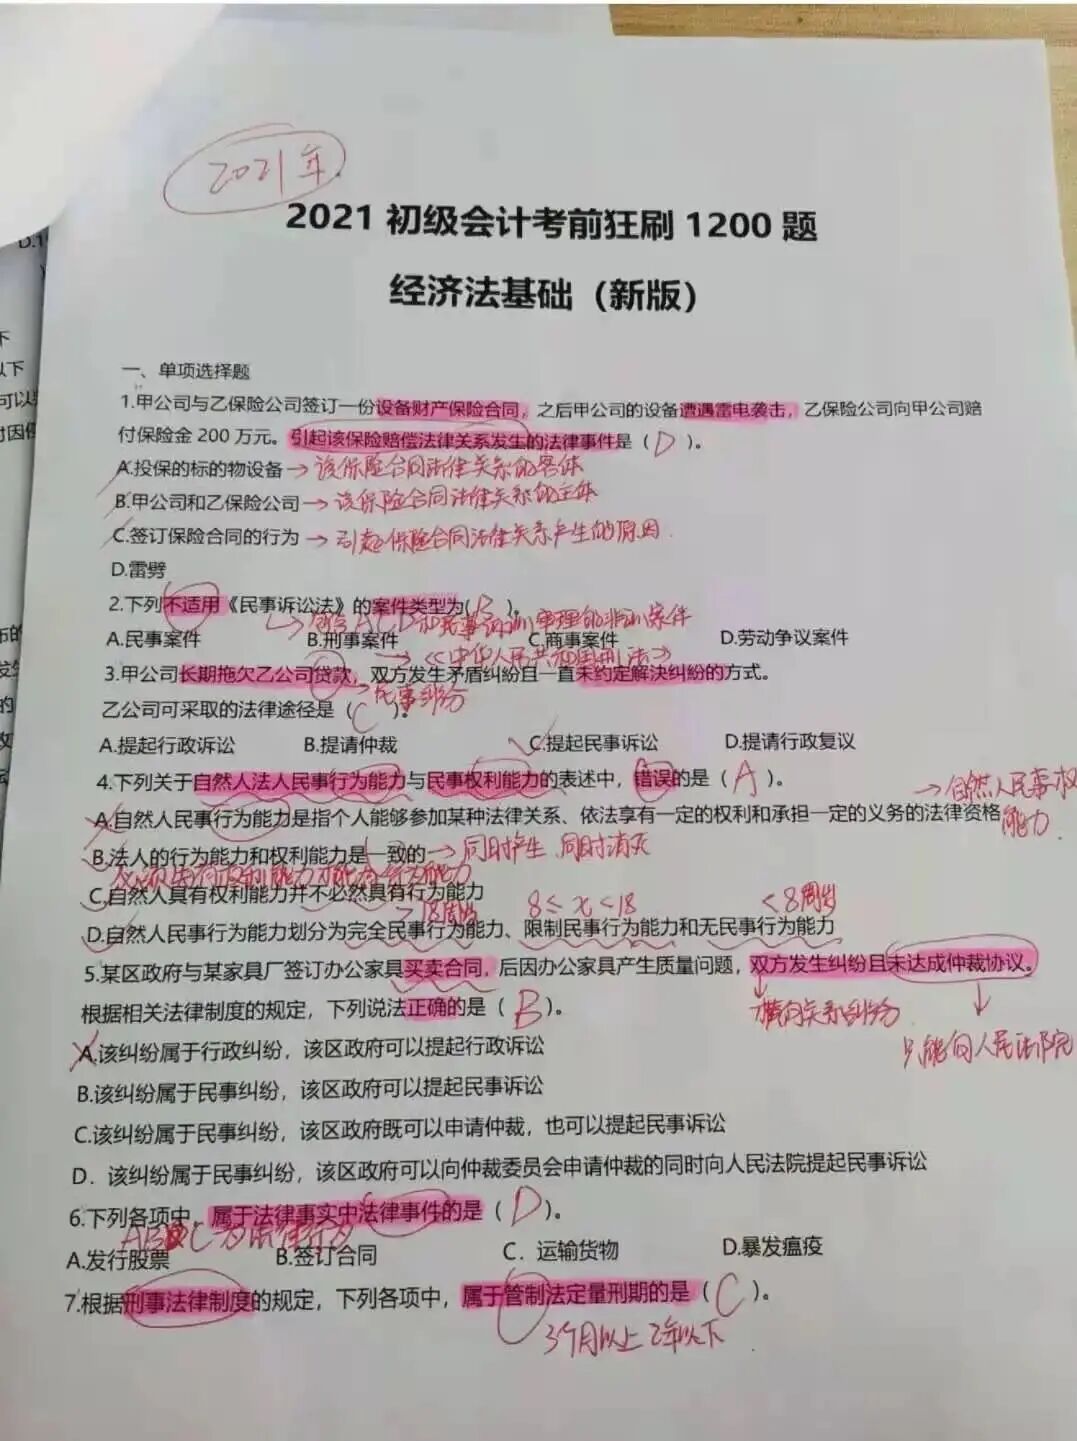 2021年
2021 初级会计考前狂刷 1200 题
经济法基础（新版）
一、单项选择题
1.甲公司与乙保险公司签订一份设备财产保险合同，之后甲公司的设备遭遇雷电袭击，乙保险公司向甲公司赔
付保险金 200 万元。引起该保险赔偿法律关系发生的法律事件是（ D ）。
A.投保的标的物设备→该保险合同法律关系的客体
B.甲公司和乙保险公司→该保险合同法律关系的主体
C.签订保险合同的行为→引起保险合同法律关系产生的原因
D.雷劈
2.下列不适用《民事诉讼法》的案件类型为( B )。
A.民事案件 B.刑事案件 C.商事案件 D.劳动争议案件
→《中华人民共和国刑法》
3.甲公司长期拖欠乙公司贷款，双方发生矛盾纠纷且一直未约定解决纠纷的方式。
→民事纠纷
乙公司可采取的法律途径是（ C ）。
A.提起行政诉讼 B.提请仲裁 C.提起民事诉讼 D.提请行政复议
4.下列关于自然人法人民事行为能力与民事权利能力的表述中，错误的是（ A ）。
→自然人民事权
A.自然人民事行为能力是指个人能够参加某种法律关系、依法享有一定的权利和承担一定的义务的法律资格
能力
B.法人的行为能力和权利能力是一致的→同时产生 同时消灭
C.自然人具有权利能力并不必然具有行为能力
>18周岁 8≤x<18 <8周岁
D.自然人民事行为能力划分为完全民事行为能力、限制民事行为能力和无民事行为能力
5.某区政府与某家具厂签订办公家具买卖合同，后因办公家具产生质量问题，双方发生纠纷且未达成仲裁协议。
根据相关法律制度的规定，下列说法正确的是（ B ）。
横向关系纠纷
只能向人民法院
A.该纠纷属于行政纠纷，该区政府可以提起行政诉讼
B.该纠纷属于民事纠纷，该区政府可以提起民事诉讼
C.该纠纷属于民事纠纷，该区政府既可以申请仲裁，也可以提起民事诉讼
D．该纠纷属于民事纠纷，该区政府可以向仲裁委员会申请仲裁的同时向人民法院提起民事诉讼
6.下列各项中，属于法律事实中法律事件的是（ D ）。
ABC为法律行为
A.发行股票 B.签订合同 C．运输货物 D.暴发瘟疫
7.根据刑事法律制度的规定，下列各项中，属于管制法定量刑期的是（ C ）。
3个月以上2年以下